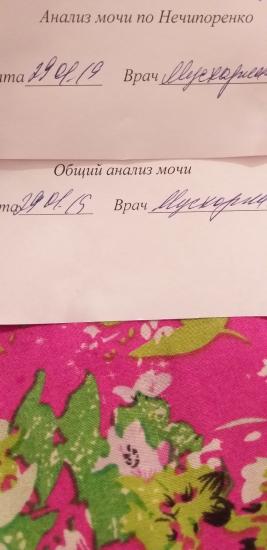 Анализ мочи по Нечипоренко
ата 29.01.19 Врач
Общий анализ мочи
та 29.01.19 Врач